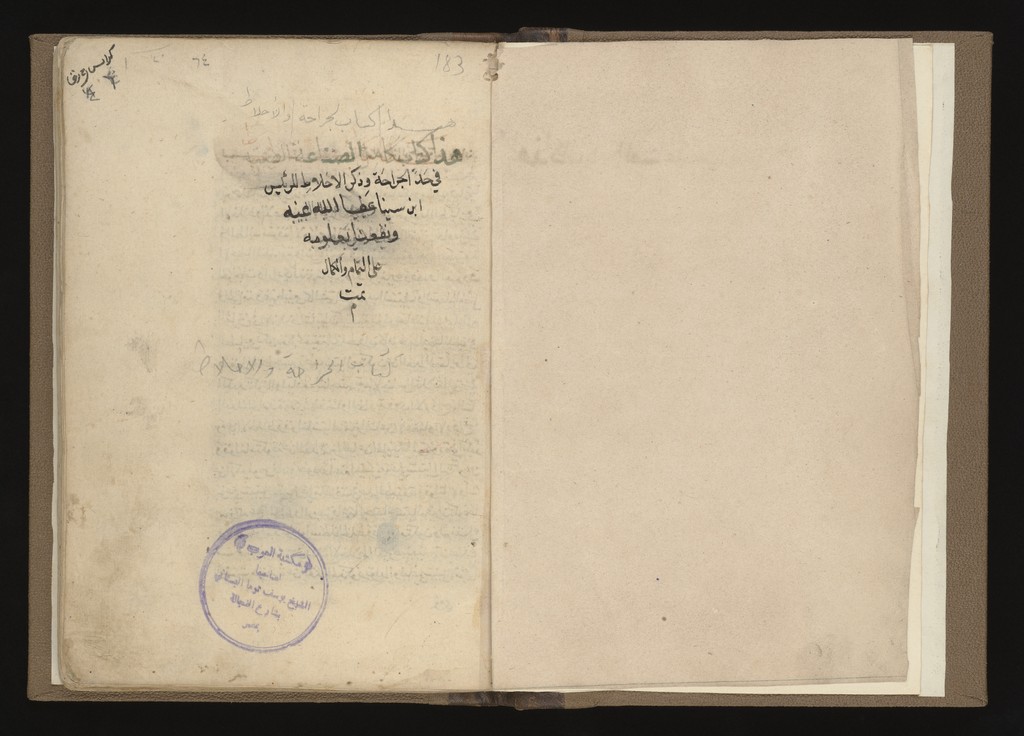 183
٦٤
كراس ورق
هذا كتاب الجراحة والاخلاط
هذا كتاب الصناعة
في حد الجراحة وذكر الاخلاط للرئيس
ابن سينا عفا الله عنه
ونفعنا بعلومه
على التمام والكمال
تمت
م
كتاب الجراحة والاخلاط
مكتبة العرب
لصاحبها
الشيخ يوسف توما البستاني
بشارع الفجالة
بمصر